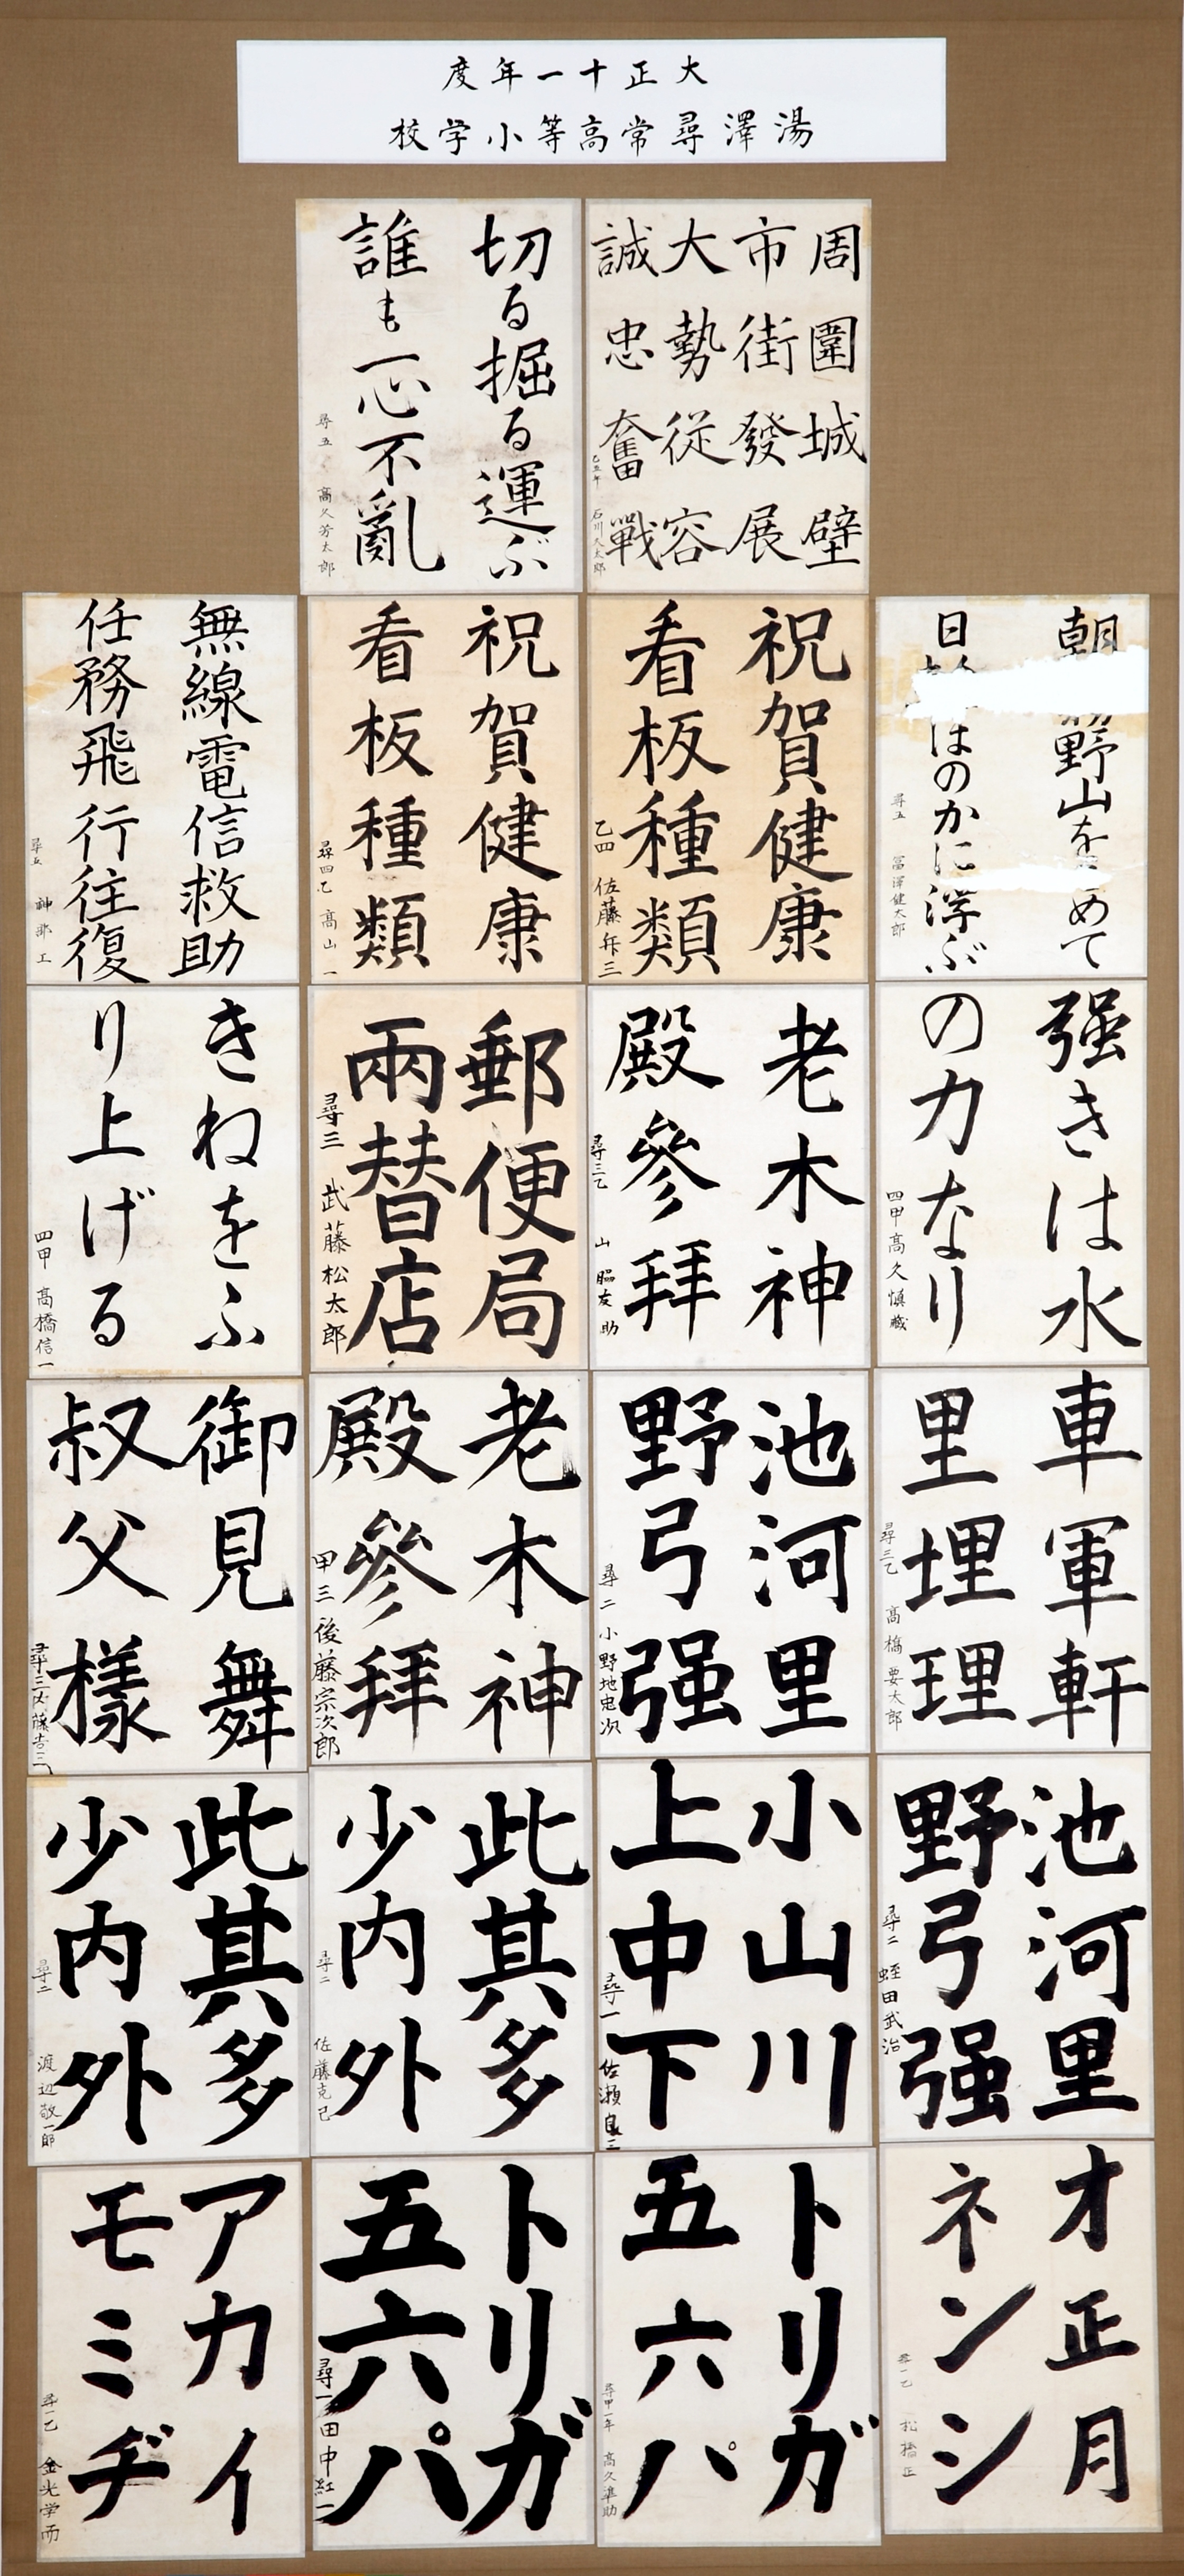 大正十一年度
湯澤尋常高等小学校
周圍城壁
市街發展
大勢従容
誠忠奮戰
石川久太郎
切る掘る運ぶ
誰も一心不亂
尋五 高久芳太郎
朝
野山をめて
日
はのかに浮ぶ
尋五 冨澤健太郎
祝賀健康
看板種類
乙四 佐藤
三
祝賀健康
看板種類
尋四乙 高山一
無線電信救助
任務飛行往復
尋五 神部工
强きは水
の力なり
四甲 高久慎藏
老木神
殿參拜
尋三乙 山脇友助
郵便局
兩替店
尋三 武藤松太郎
きねをふ
り上げる
四甲 高橋信一
車軍軒
里埋理
尋三乙 高橋要太郎
池河里
野弓强
尋二 小野地忠次
老木神
殿參拜
甲三 後藤宗次郎
御見舞
叔父樣
尋三
藤吉三
池河里
野弓强
尋二 蛭田武治
小山川
上中下
尋一 佐瀬良三
此其多
少内外
尋二 佐藤克己
此其多
少内外
尋二 渡辺敬一郎
オ正月
ネンシ
尋一乙 松橋正
トリガ
五六パ
尋甲一年 高久準助
トリガ
五六パ
尋一 田中紅一
アカイ
モミヂ
尋一乙 金光学而